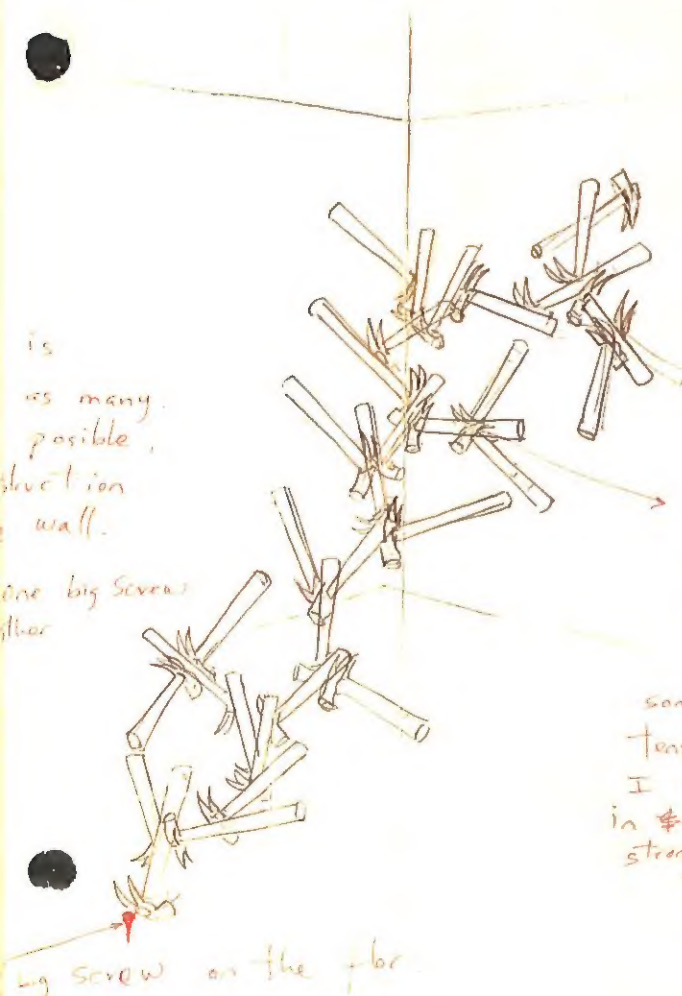 is
as many
posible,
struction
wall.
one big screw
ther
I
in
big screw on the flor